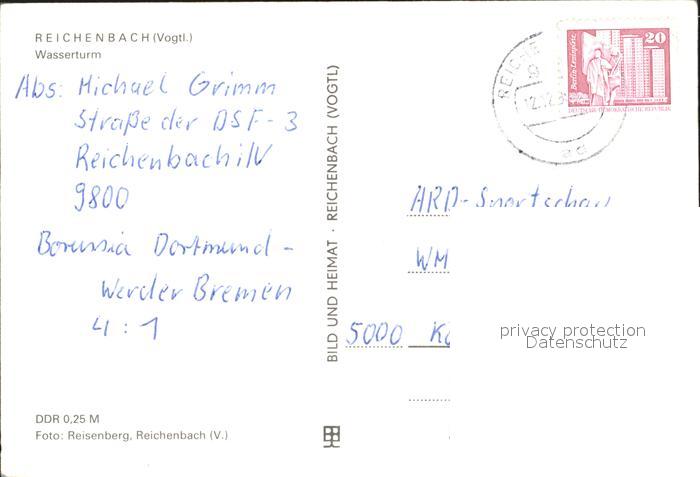 REICHENBACH (Vogtl.)
Wasserturm
Abs: Michael Grimm
Straße der DSF - 3
Reichenbach i/V
9800
Borussia Dortmund -
Werder Bremen
4 : 1
DDR 0,25 M
Foto: Reisenberg, Reichenbach (V.)
BILD UND HEIMAT · REICHENBACH (VOGTL)
20
Berlin-Leninplatz
DEUTSCHE DEMOKRATISCHE REPUBLIK
ARD-Sportschau
WM
5000 Kö
privacy protection
Datenschutz